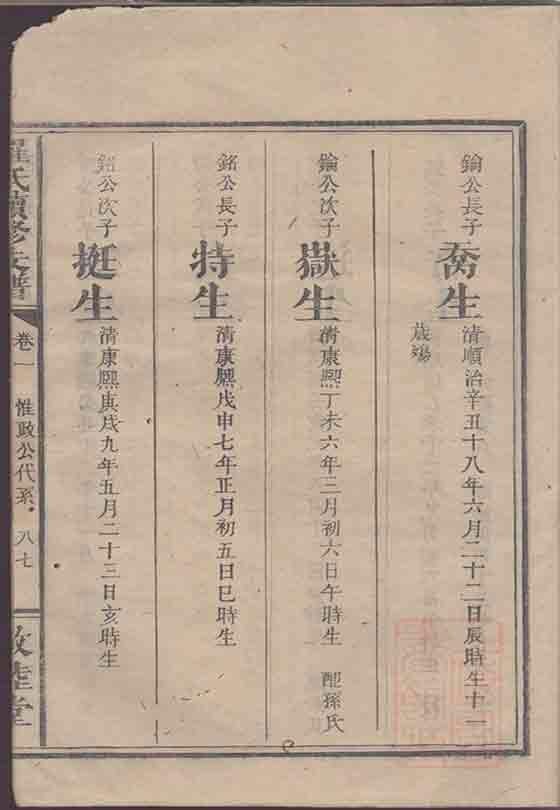 鑰公長子
喬生
清順治辛丑十八年六月二十二日辰時生十一
歲殤
鑰公次子
嶽生
清康熙丁未六年三月初六日午時生 配孫氏
銘公長子
特生
清康熙戊申七年正月初五日巳時生
銘公次子
挺生
清康熙庚戌九年五月二十三日亥時生
氏續修支譜
卷一
惟政公代系
八七
敦睦堂